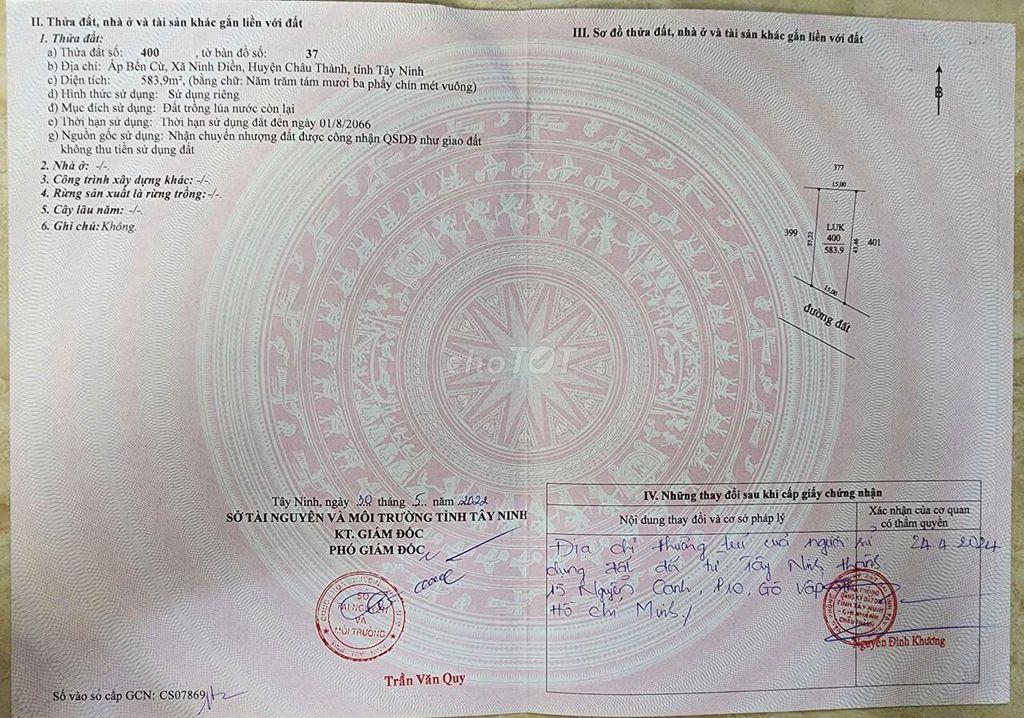 II. Thửa đất, nhà ở và tài sản khác gắn liền với đất
1. Thửa đất:
a) Thửa đất số: 400 , tờ bản đồ số: 37
b) Địa chỉ: Ấp Bến Cừ, Xã Ninh Điền, Huyện Châu Thành, tỉnh Tây Ninh
c) Diện tích: 583.9m², (bằng chữ: Năm trăm tám mươi ba phẩy chín mét vuông)
d) Hình thức sử dụng: Sử dụng riêng
đ) Mục đích sử dụng: Đất trồng lúa nước còn lại
e) Thời hạn sử dụng: Thời hạn sử dụng đất đến ngày 01/8/2066
g) Nguồn gốc sử dụng: Nhận chuyển nhượng đất được công nhận QSDĐ như giao đất
không thu tiền sử dụng đất
2. Nhà ở: -/-.
3. Công trình xây dựng khác: -/-.
4. Rừng sản xuất là rừng trồng: -/-.
5. Cây lâu năm: -/-.
6. Ghi chú: Không.
Tây Ninh, ngày 30 tháng 5 năm 2022
SỞ TÀI NGUYÊN VÀ MÔI TRƯỜNG TỈNH TÂY NINH
KT. GIÁM ĐỐC
PHÓ GIÁM ĐỐC
SỞ
TÀI NGUYÊN
VÀ
MÔI TRƯỜNG
Trần Văn Quy
Số vào sổ cấp GCN: CS07869
III. Sơ đồ thửa đất, nhà ở và tài sản khác gắn liền với đất
B
377
15,00
399
37,22
LUK
400
583.9
43,46
401
15,00
đường đất
choTỐT
IV. Những thay đổi sau khi cấp giấy chứng nhận
Nội dung thay đổi và cơ sở pháp lý
Xác nhận của cơ quan
có thẩm quyền
Địa chỉ thường trú của người sử 24.4.2024
dụng đất từ Tây Ninh thành
15 Nguyễn Oanh, P10, Gò Vấp
Hồ Chí Minh
VĂN PHÒNG
ĐĂNG KÝ ĐẤT ĐAI
TỈNH TÂY NINH
CHI NHÁNH
CHÂU THÀNH
Nguyễn Đình Khương